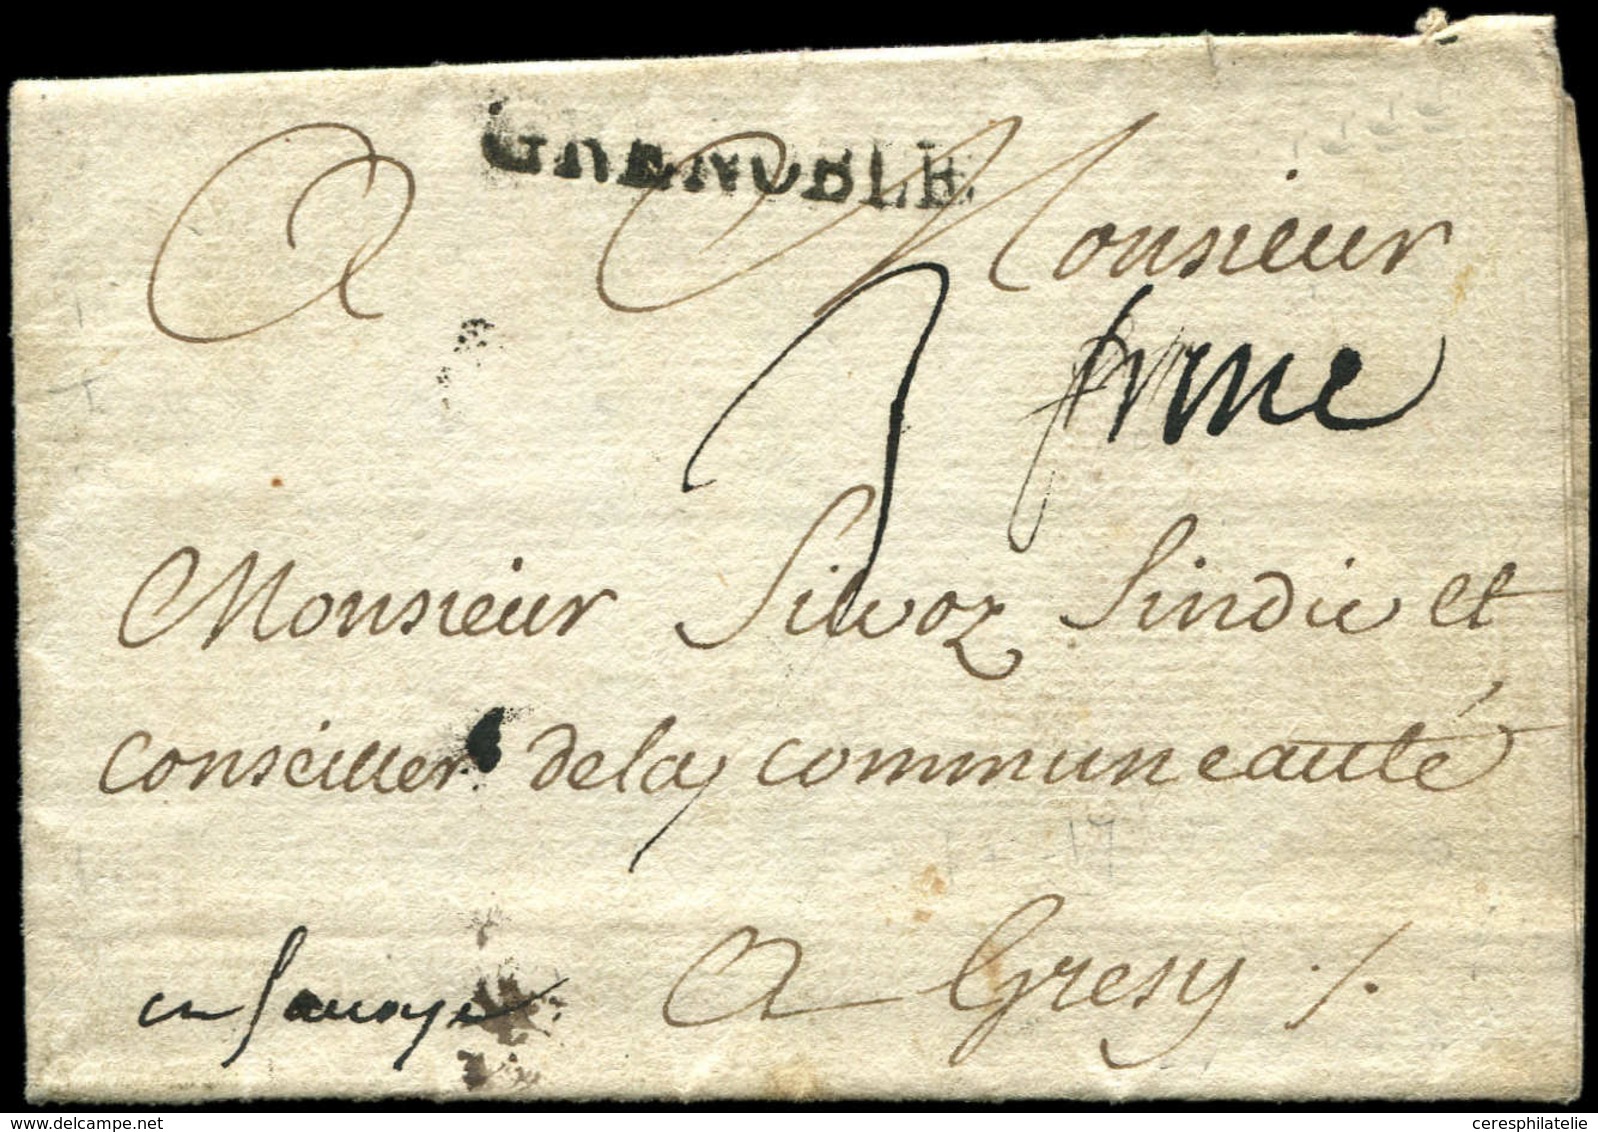 GRENOBLE
A Monsieur
7
Monsieur Silvoz Sindic et
conseiller de la communeauté
A Gresy
en Savoye
delcampe.net
ceresphilatelie